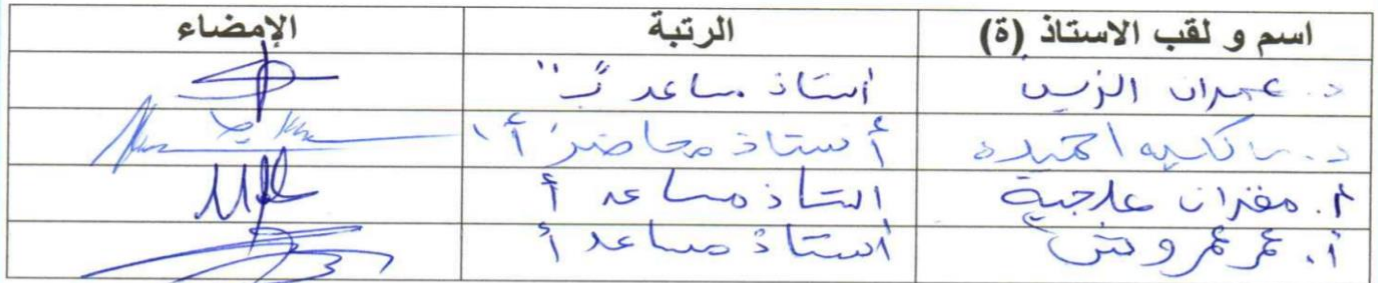 اسم و لقب الاستاذ (ة) الرتبة الإمضاء
د. عمران الزين استاذ مساعد "ب"
د. احميدة أستاذ محاضر "أ"
أ. مقران علجية استاذ مساعد أ
أ. عمر عمروش استاذ مساعد أ